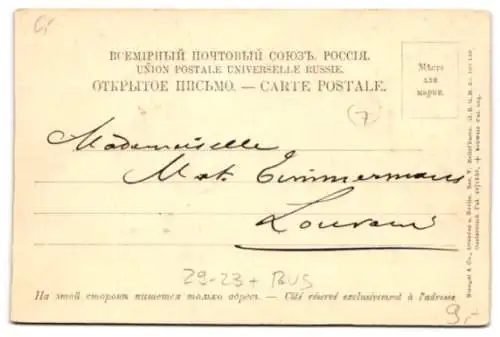 6,-
ВСЕМІРНЫЙ ПОЧТОВЫЙ СОЮЗЪ. РОССІЯ.
UNION POSTALE UNIVERSELLE RUSSIE.
ОТКРЫТОЕ ПИСЬМО. — CARTE POSTALE.
Мѣсто
для
марки.
7
Mademoiselle
Timmermans
Louvain
29-23 + RUS
На этой сторонѣ пишется только адресъ. — Côté réservé exclusivement à l'adresse.
9,-